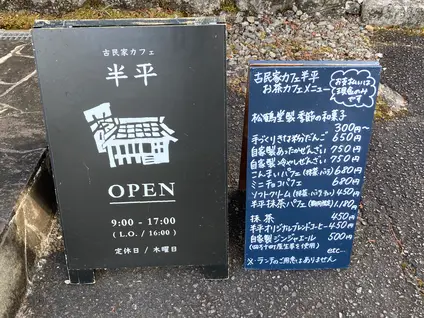 古民家カフェ
半平
OPEN
9:00 - 17:00
( L.O. / 16:00 )
定休日 / 木曜日
古民家カフェ半平
お茶カフェメニュー
お支払いは
現金のみ
です
松鶴堂製 季節の和菓子
300円〜
手づくりきなこ団子 650円
自家製あったかぜんざい 750円
自家製冷やしぜんざい 750円
パフェ(抹茶・バニラ) 680円
ミニチョコパフェ 680円
ソフトクリーム(抹茶・バニラ) 450円
半平抹茶パフェ 1,180円
抹茶 450円
半平オリジナルブレンドコーヒー 450円
自家製ジンジャエール 500円
(四万十町産生姜を使用)
etc...
※ランチのご用意はありません